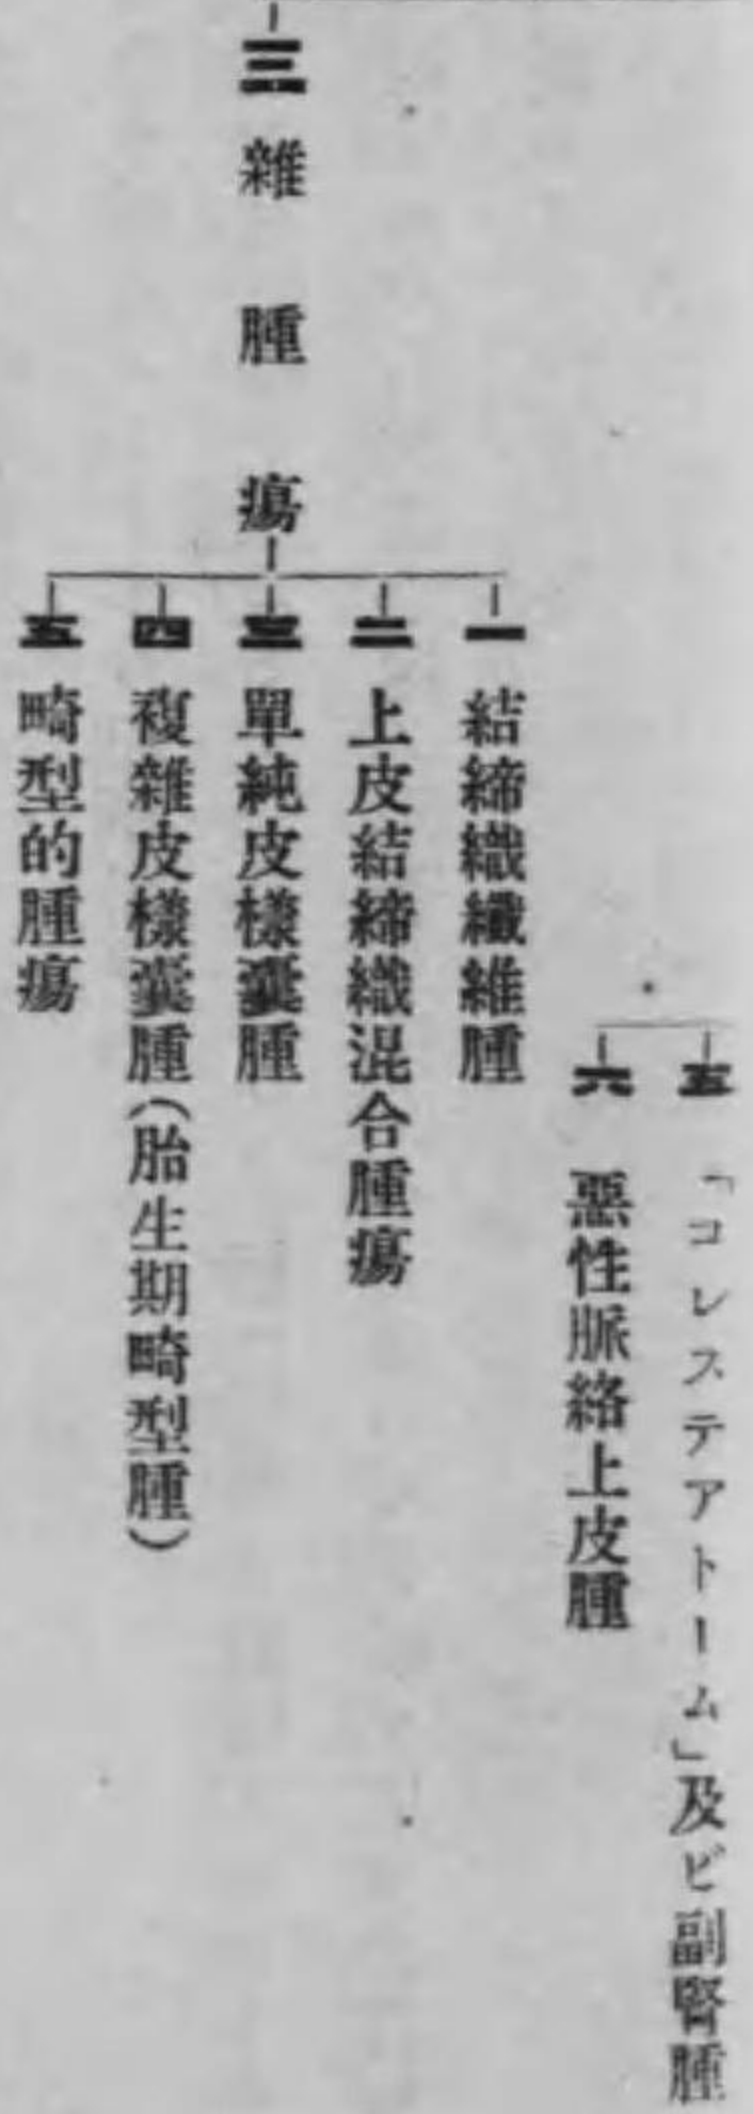 五 「コレステアトーム」及ビ副腎腫
六 惡性脈絡上皮腫
三 雜腫瘍
一 結締織纖維腫
二 上皮結締織混合腫瘍
三 單純皮樣囊腫
四 複雜皮樣囊腫(胎生期畸型腫)
五 畸型的腫瘍